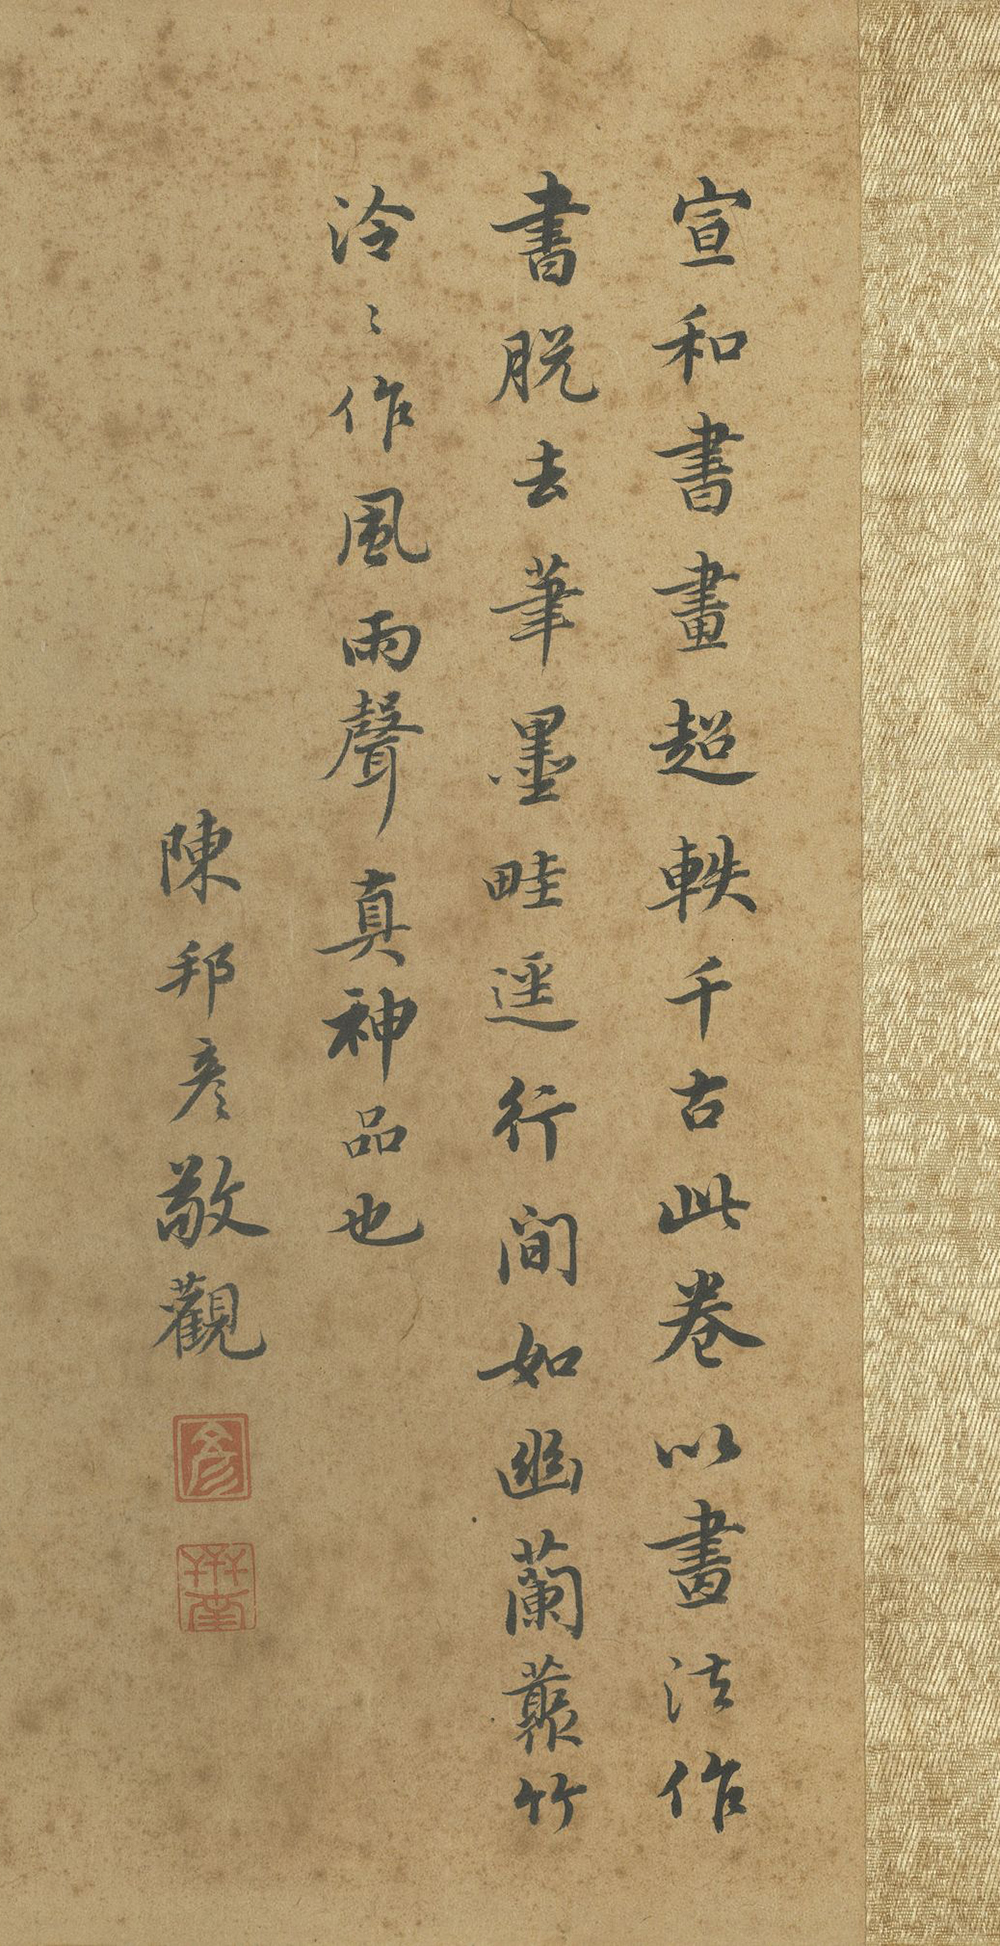 宣和書畫超軼千古此卷以畫法作
書脫去筆墨畦逕行間如幽蘭叢竹
泠〻作風雨聲真神品也
陳邦彥敬觀
彥